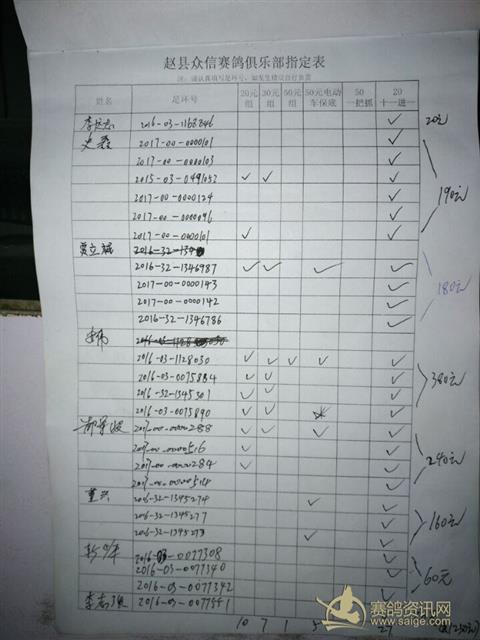 赵县众信赛鸽俱乐部指定表
注：请认真填写足环号，如发生错误自行负责
姓名 足环号 20元组 30元组 50元组 50元电动车保底 50一把抓 20十一进一
2016-03-1168846 ✓ 20元
史磊 2017-00-0000101 ✓
2017-00-0000103 ✓
2015-03-0491052 ✓ ✓ ✓
2017-00-0000124 ✓ 190元
2017-00-0000096 ✓
2017-00-0000101 ✓ ✓
贾立斌
2016-32-1346987 ✓ ✓ ✓ ✓
2017-00-0000143 ✓ 180元
2017-00-0000142 ✓
2016-32-1346786 ✓
2016-03-1128030 ✓ ✓ ✓ ✓ ✓
2016-03-0075884 ✓ ✓ ✓ 380元
2016-32-1345307 ✓ ✓ ✓
2016-03-0075890 ✓ ✓ ✓
2017-00-0000288 ✓ ✓ ✓ ✓
2017-00-0000516 ✓ ✓ 240元
2017-00-0000284 ✓ ✓
2017-00-0000514 ✓
董兴 2016-32-1345274 ✓ ✓
2016-32-1345277 ✓ 160元
2016-32-1345273 ✓ ✓
2016-03-0077308 ✓
2016-03-0077340 ✓ 60元
2016-03-0077342 ✓
2016-03-0077351 ✓
10 7 1 5 27
赛鸽资讯网
www.saige.com